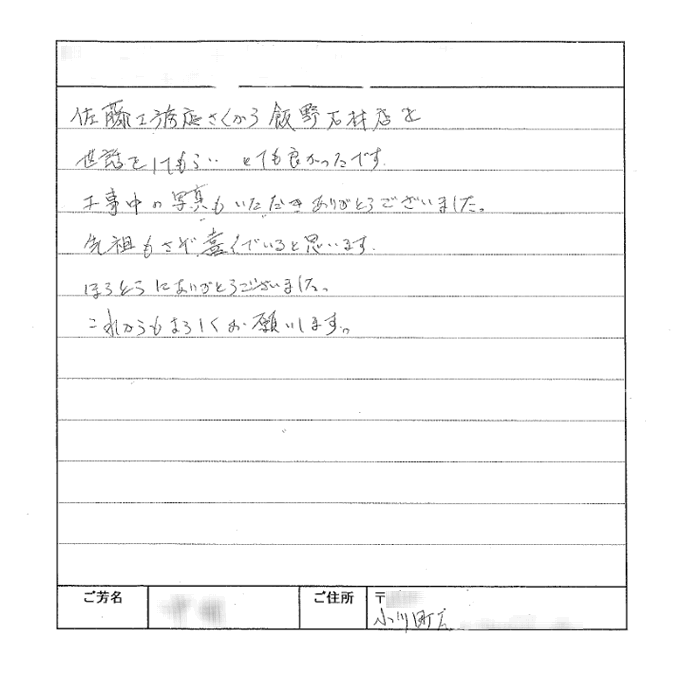 佐藤工務店さんから飯野石材店を
世話をしてもらい とても良かったです。
工事中の写真もいただきありがとうございました。
先祖もさぞ喜んでいると思います。
ほんとうにありがとうございました。
これからもよろしくお願いします。
ご芳名
ご住所
〒
小川町